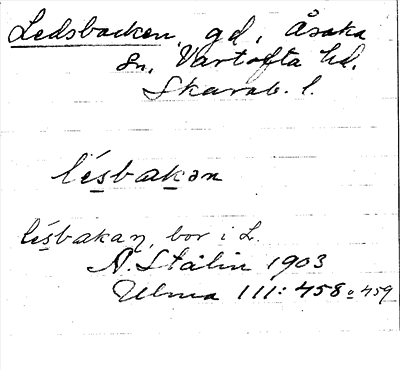 Ledsbacken, gd, Åsaka
sn, Vartofta hd,
Skarab. l.
lésbakən
lésbakaŋ, bor i L.
A. Stålin 1903
Ulma 111: 458 o 459